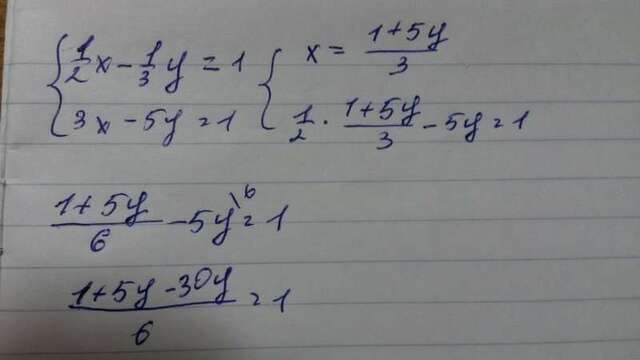 { 1/2 x - 1/3 y = 1 { x = (1+5y)/3
{ 3x - 5y = 1 { 1/2 · (1+5y)/3 - 5y = 1
(1+5y)/6 - 5y \6 = 1
(1+5y-30y)/6 = 1